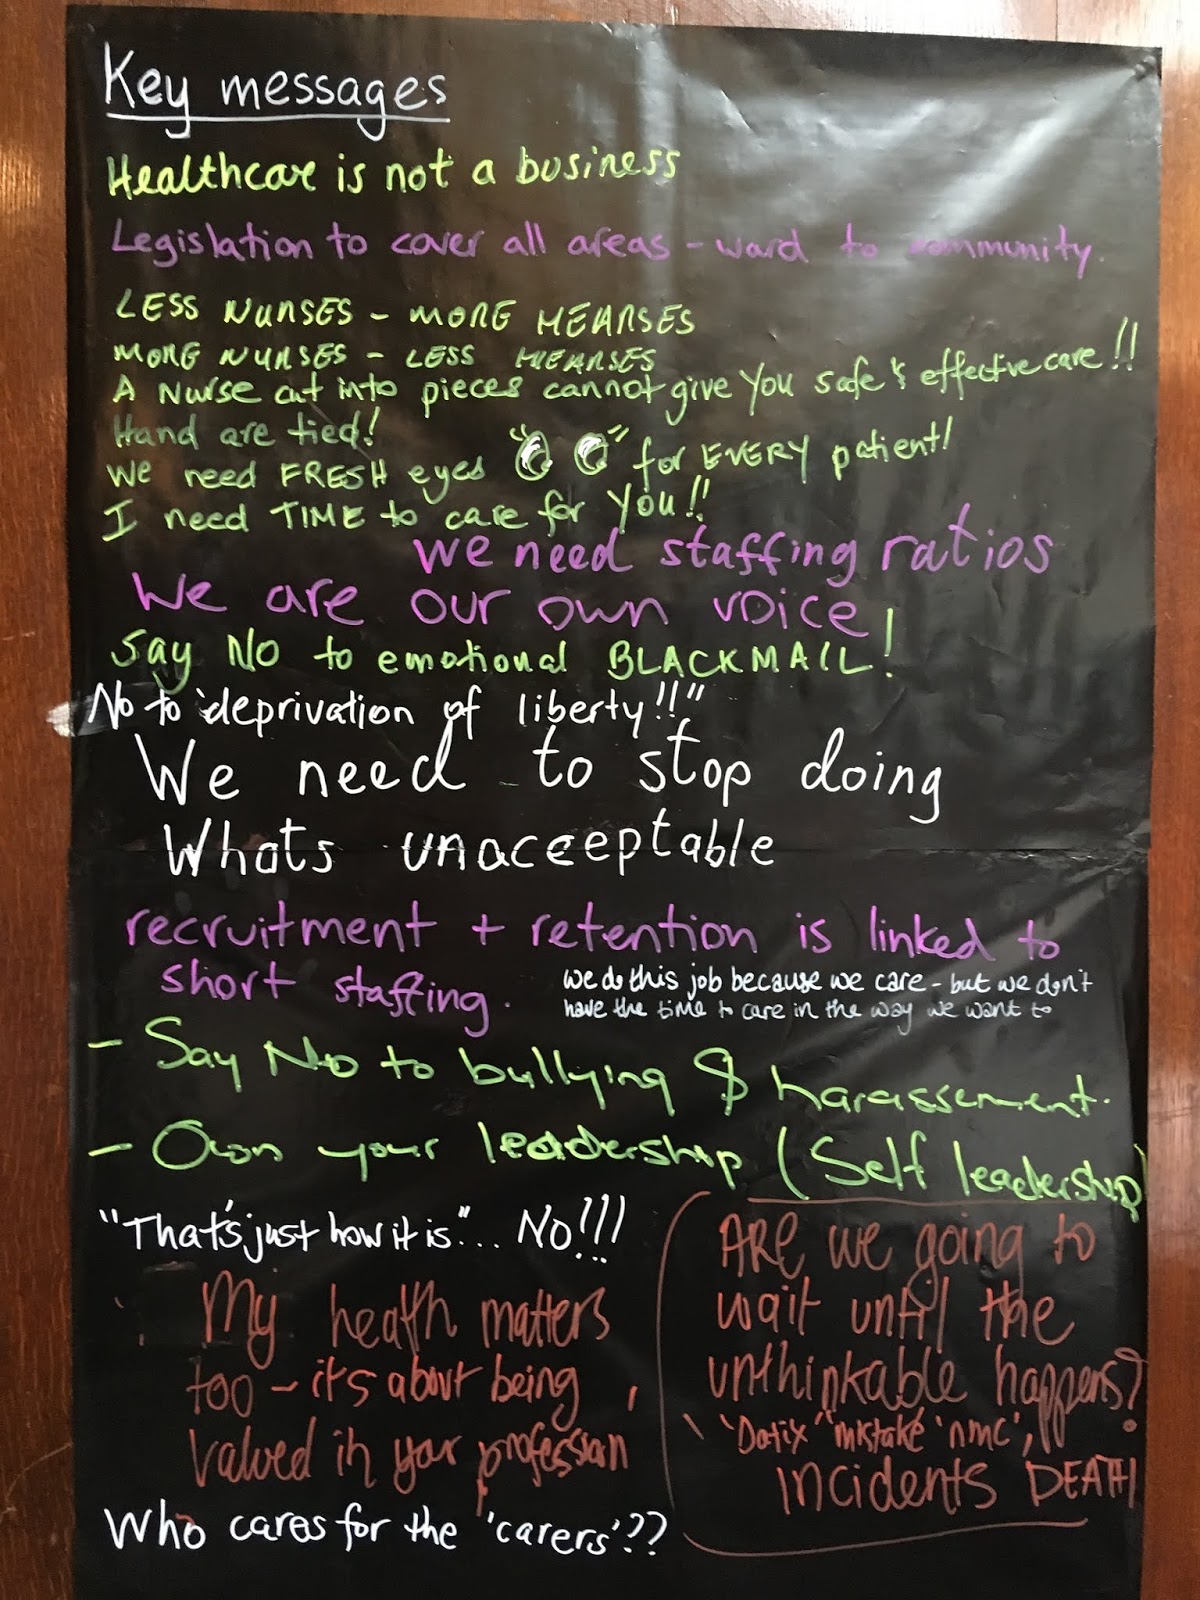 Key messages
Healthcare is not a business
Legislation to cover all areas - ward to community.
LESS NURSES - MORE HEARSES
MORE NURSES - LESS HEARSES
A Nurse cut into pieces cannot give you safe & effective care!!
Hand are tied!
We need FRESH eyes for EVERY patient!
I need TIME to care for YOU!!
We need staffing ratios
We are our own voice!
Say NO to emotional BLACKMAIL!
No to 'deprivation of liberty!!"
We need to stop doing
Whats unacceptable
recruitment + retention is linked to
short staffing.
we do this job because we care - but we don't
have the time to care in the way we want to
- Say No to bullying & harassement.
- Own your leadership (Self leadership)
"That's just how it is"... NO!!!
My health matters
too - it's about being
valued in your profession
Who cares for the 'carers'??
ARE we going to
wait until the
unthinkable happens?
'Datix' 'mistake' 'nmc',
incidents DEATH!